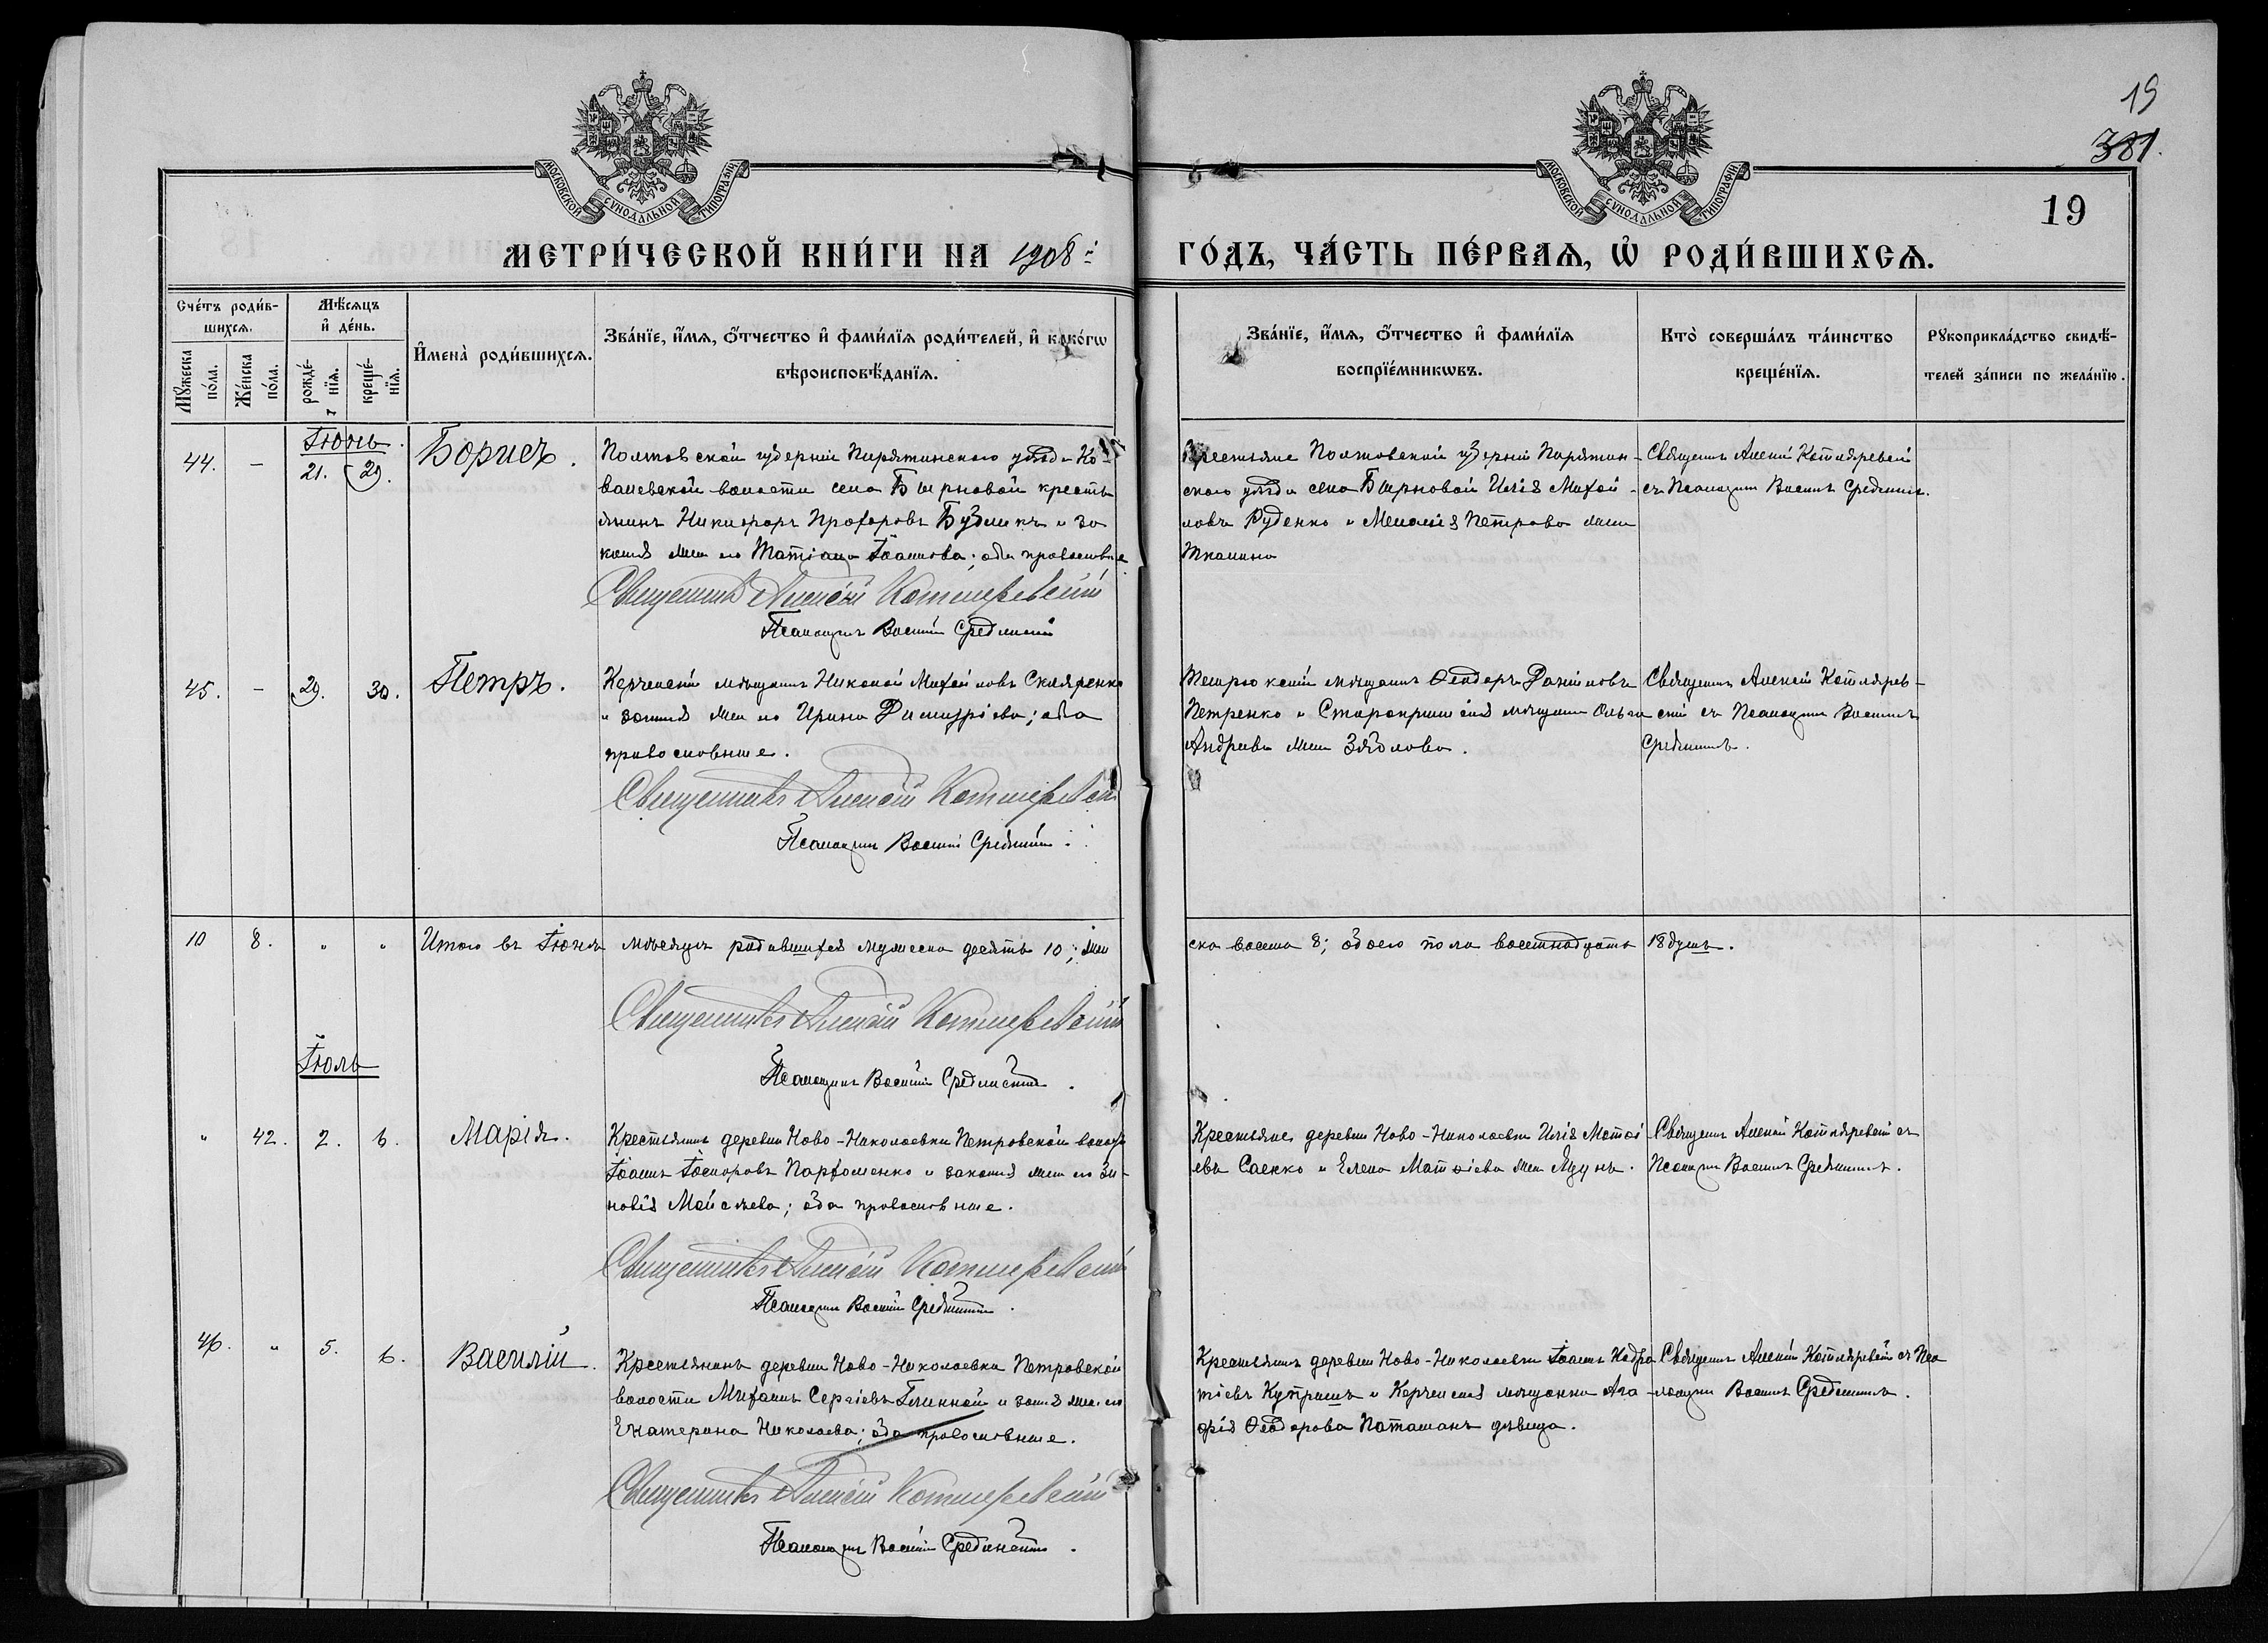 19
381.
19
МОСКОВСКОЙ СѴНОДАЛЬНОЙ ТИПОГРАФІИ
МОСКОВСКОЙ СѴНОДАЛЬНОЙ ТИПОГРАФІИ
МЕТРИ́ЧЕСКОЙ КНИ́ГИ НА 1908й
ГО́ДЪ, ЧА́СТЬ ПЕ́РВАѦ, Ѽ РОДИ́ВШИХСѦ.
Сче́тъ роди́в-
шихсѧ.
Мꙋ́жеска по́ла.
Же́нска по́ла.
Мѣ́сѧцъ
и҆ де́нь.
рожде́-
нїѧ.
креще́-
нїѧ.
И҆мена̀ роди́вшихсѧ.
Зва́нїе, и҆́мѧ, ѻ҆́тчество и҆ фами́лїѧ роди́телей, и҆ како́гѡ
вѣроисповѣ́данїѧ.
Зва́нїе, и҆́мѧ, ѻ҆́тчество и҆ фами́лїѧ
воспрїе́мникѡвъ.
Кто̀ соверша́лъ та́инство
креще́нїѧ.
Рꙋкоприкла́дство свидѣ́-
телей за́писи по жела́нїю.
Іюнь.
44. - 21. 29. Борисъ.
Полтавской губерніи Пирятинскаго уѣзда Ко-
валевской волости села крестья
янинъ Никифоръ Прохоровъ и за
конная жена его Татіана Іоаннова; оба православные
Священникъ Алексій Котляревскій
Псаломщикъ Василій Срединскій
Крестьяне Полтавской губерніи Пирятин-
скаго уѣзда села Илія Михай-
ловъ Руденко и Петрова жена
Ткалина
Священникъ Алексій Котляревскій
съ Псаломщикомъ Василіемъ Срединскимъ.
45. - 29. 30. Петръ.
Керченскій мѣщанинъ Николай Михайловъ Скляренко
и законная жена его Ирина Димитріева; оба
православные.
Священникъ Алексій Котляревскій
Псаломщикъ Василій Срединскій.
Темрюкскій мѣщанинъ Ѳеодоръ Даніиловъ
Петренко и Старокрымская мѣщанка Ольга
Андреева жена
Священникъ Алексій Котлярев-
скій съ Псаломщикомъ Василіемъ
Срединскимъ.
10 8. " " Итого въ Іюнѣ мѣсяцѣ родившихся мужеска десять 10; жен
ска восемь 8; обоего пола восемнадцать 18 душъ.
Священникъ Алексій Котляревскій
Псаломщикъ Василій Срединскій.
Іюль
" 42. 2. 6. Марія.
Крестьянинъ деревни Ново-Николаевки Петровской волости
Іоаннъ Пархоменко и законная жена его Зи-
новія Моисеева; оба православные.
Священникъ Алексій Котляревскій
Псаломщикъ Василій Срединскій.
Крестьяне деревни Ново-Николаевки Илія Матѳі
евъ Саенко и Елена Матѳіева жена
Священникъ Алексій Котляревскій съ
Псаломщикомъ Василіемъ Срединскимъ.
46. " 5. 6. Василій.
Крестьянинъ деревни Ново-Николаевки Петровской
волости Михаилъ Сергіевъ Глинной и законная жена его
Екатерина Николаева; оба православные.
Священникъ Алексій Котляревскій
Псаломщикъ Василій Срединскій.
Крестьянинъ деревни Ново-Николаевки Іоаннъ Кодра
тіевъ и Керченская мѣщанка Ага
фія Ѳеодорова Паташанъ дѣвица.
Священникъ Алексій Котляревскій съ Пса
ломщикомъ Василіемъ Срединскимъ.